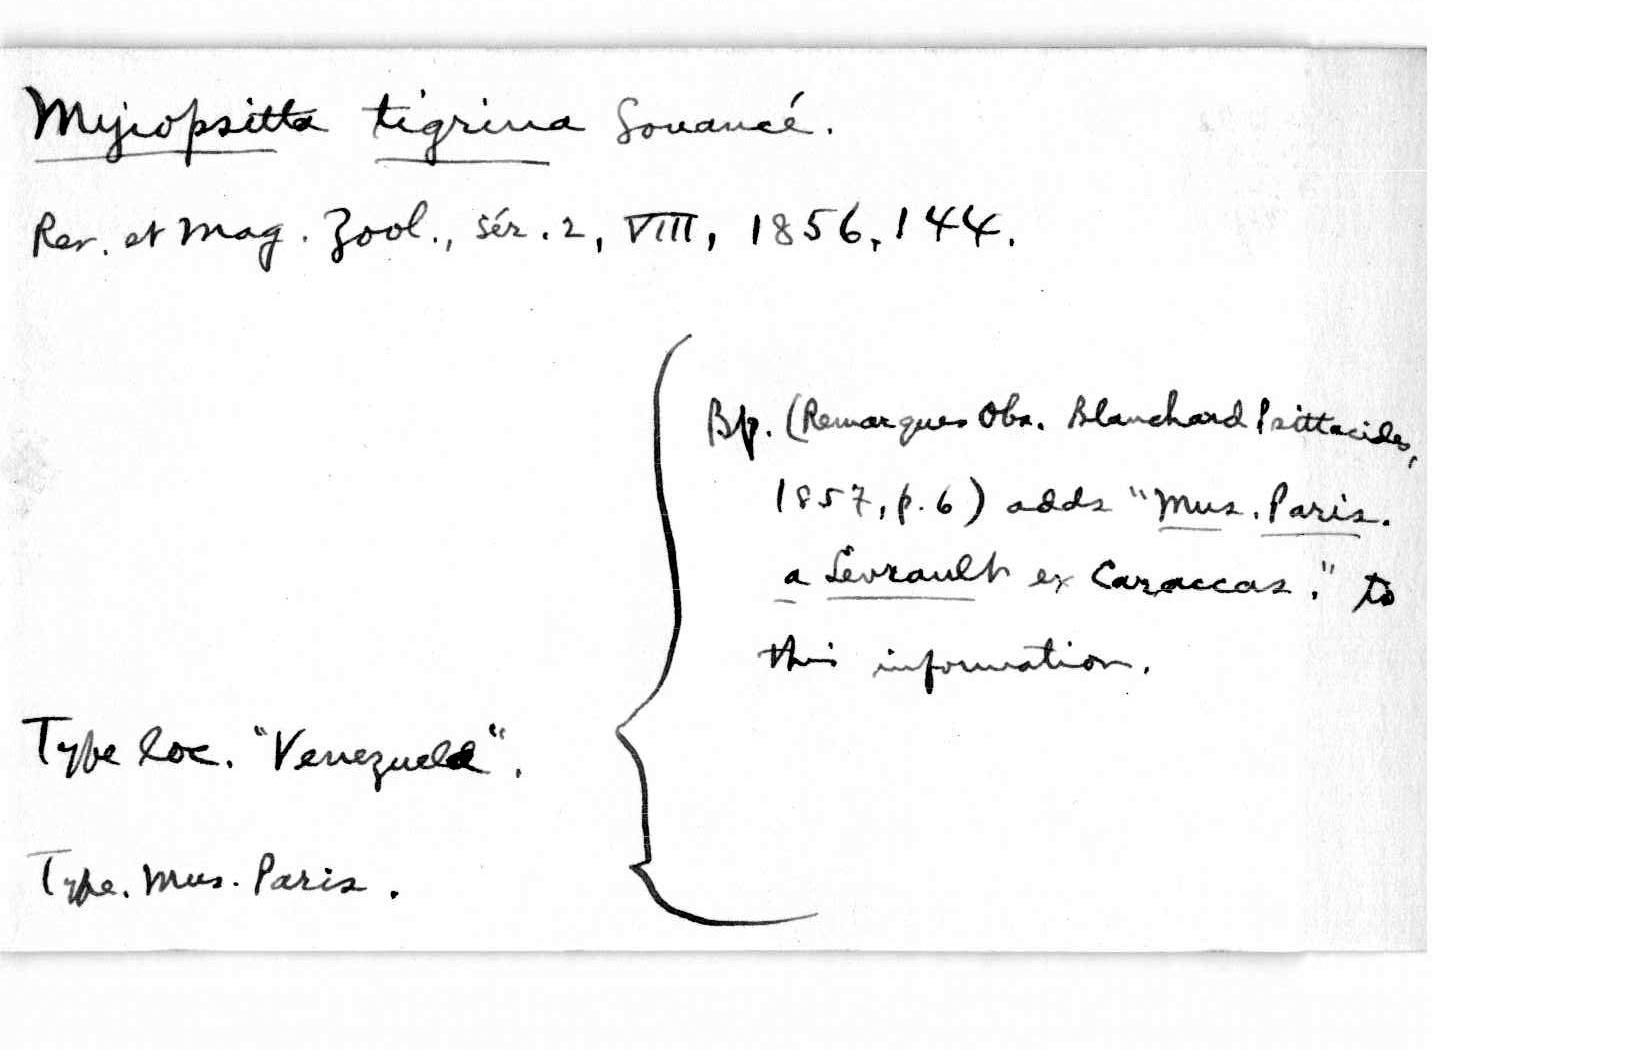 Myiopsitta tigrina Souancé.
Rev. et Mag. Zool., sér. 2, VIII, 1856, 144.
Bp. (Remarques Obs. Blanchard Psittacides,
1857, p. 6) adds "Mus. Paris.
a Levrault ex Caraccas." to
this information.
Type loc. "Venezuela".
Type. Mus. Paris.